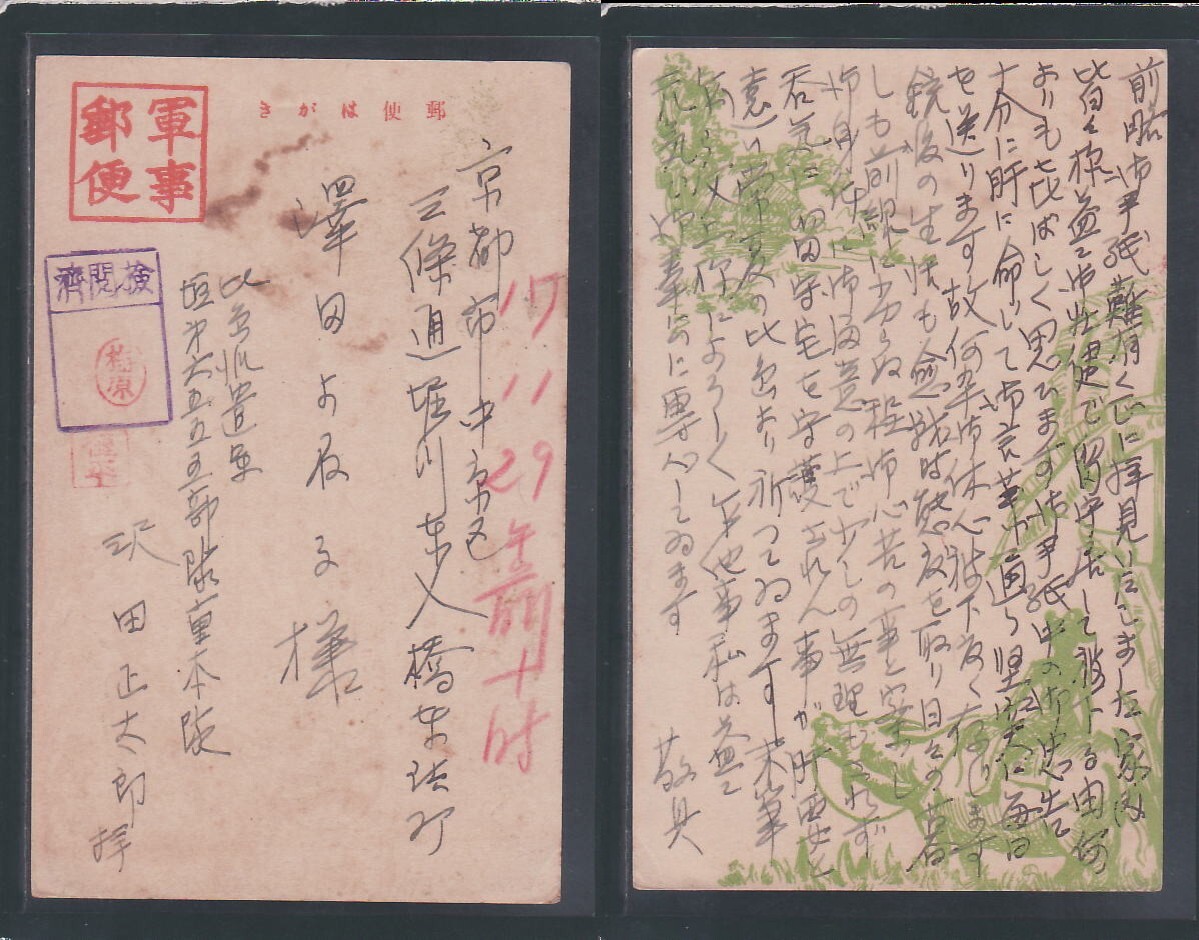 軍事
郵便
郵便はがき
検閲済
梅原
京都市中京区
三條通堀川東入橋東詰町
澤田よねる様
17 11 29 午前十時
比島派遣軍
垣第六五五五部隊重本隊
沢田正太郎 拝
前略 御手紙難有く正に拝見いたしました 家内
皆々様益々御壮健で留守居して被下る由何
よりも喜ばしく思ひます 御手紙中の
十分に肝に命じて御言葉 通り堅實に毎日
を送ります故何卒御休心被下度く存じます
銃後の生活も愈戦時態度を取り日々の
しも前線に劣らぬ程御心苦の事と察し
御身体に御注意の上で少しの無理もされず
呑気に留守宅を守護されん事が肝要と
遠い常夏の比島より祈つてゐます 末筆
父上様によろしく 他事私は益々
元気に御奉公に専心してゐます
敬具